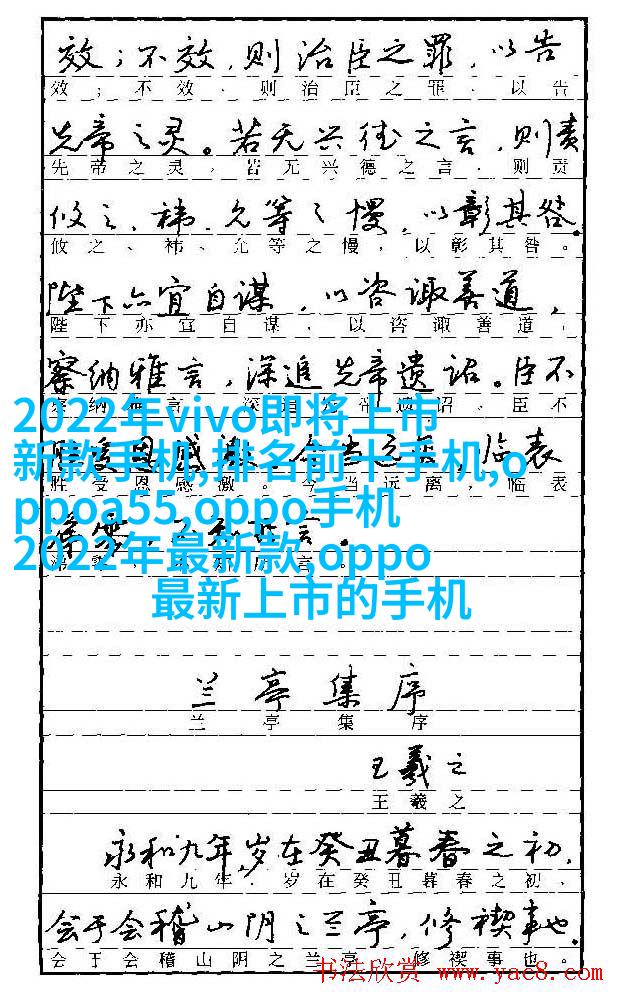 效；不效，则治臣之罪，以告
效；不效、则治臣之罪、以告
先帝之灵。若无兴德之言，则责
先帝之灵，若无兴德之言，则责
攸之、祎、允等之慢，以彰其咎。
攸之、祎、允等之慢，以彰其咎。
陛下亦宜自谋，以咨诹善道，
陛下亦宜自谋，以咨诹善道，
察纳雅言，深追先帝遗诏。臣不
2022年vivo即将上市
新款手机,排名前十手机,o
ppoa55,oppo手机
2022年最新款,oppo
最新上市的手机
胜受恩感激。今当远离，临表
兰亭集序
兰亭集序
王羲之
王羲之
永和九年,岁在癸丑暮春之初,
永和九年．岁在癸丑暮春之初、
会于会稽山阴之兰亭,修禊事也.
会于会稽山阴之兰亭 修禊事也。
书法欣赏 www.yac8.com